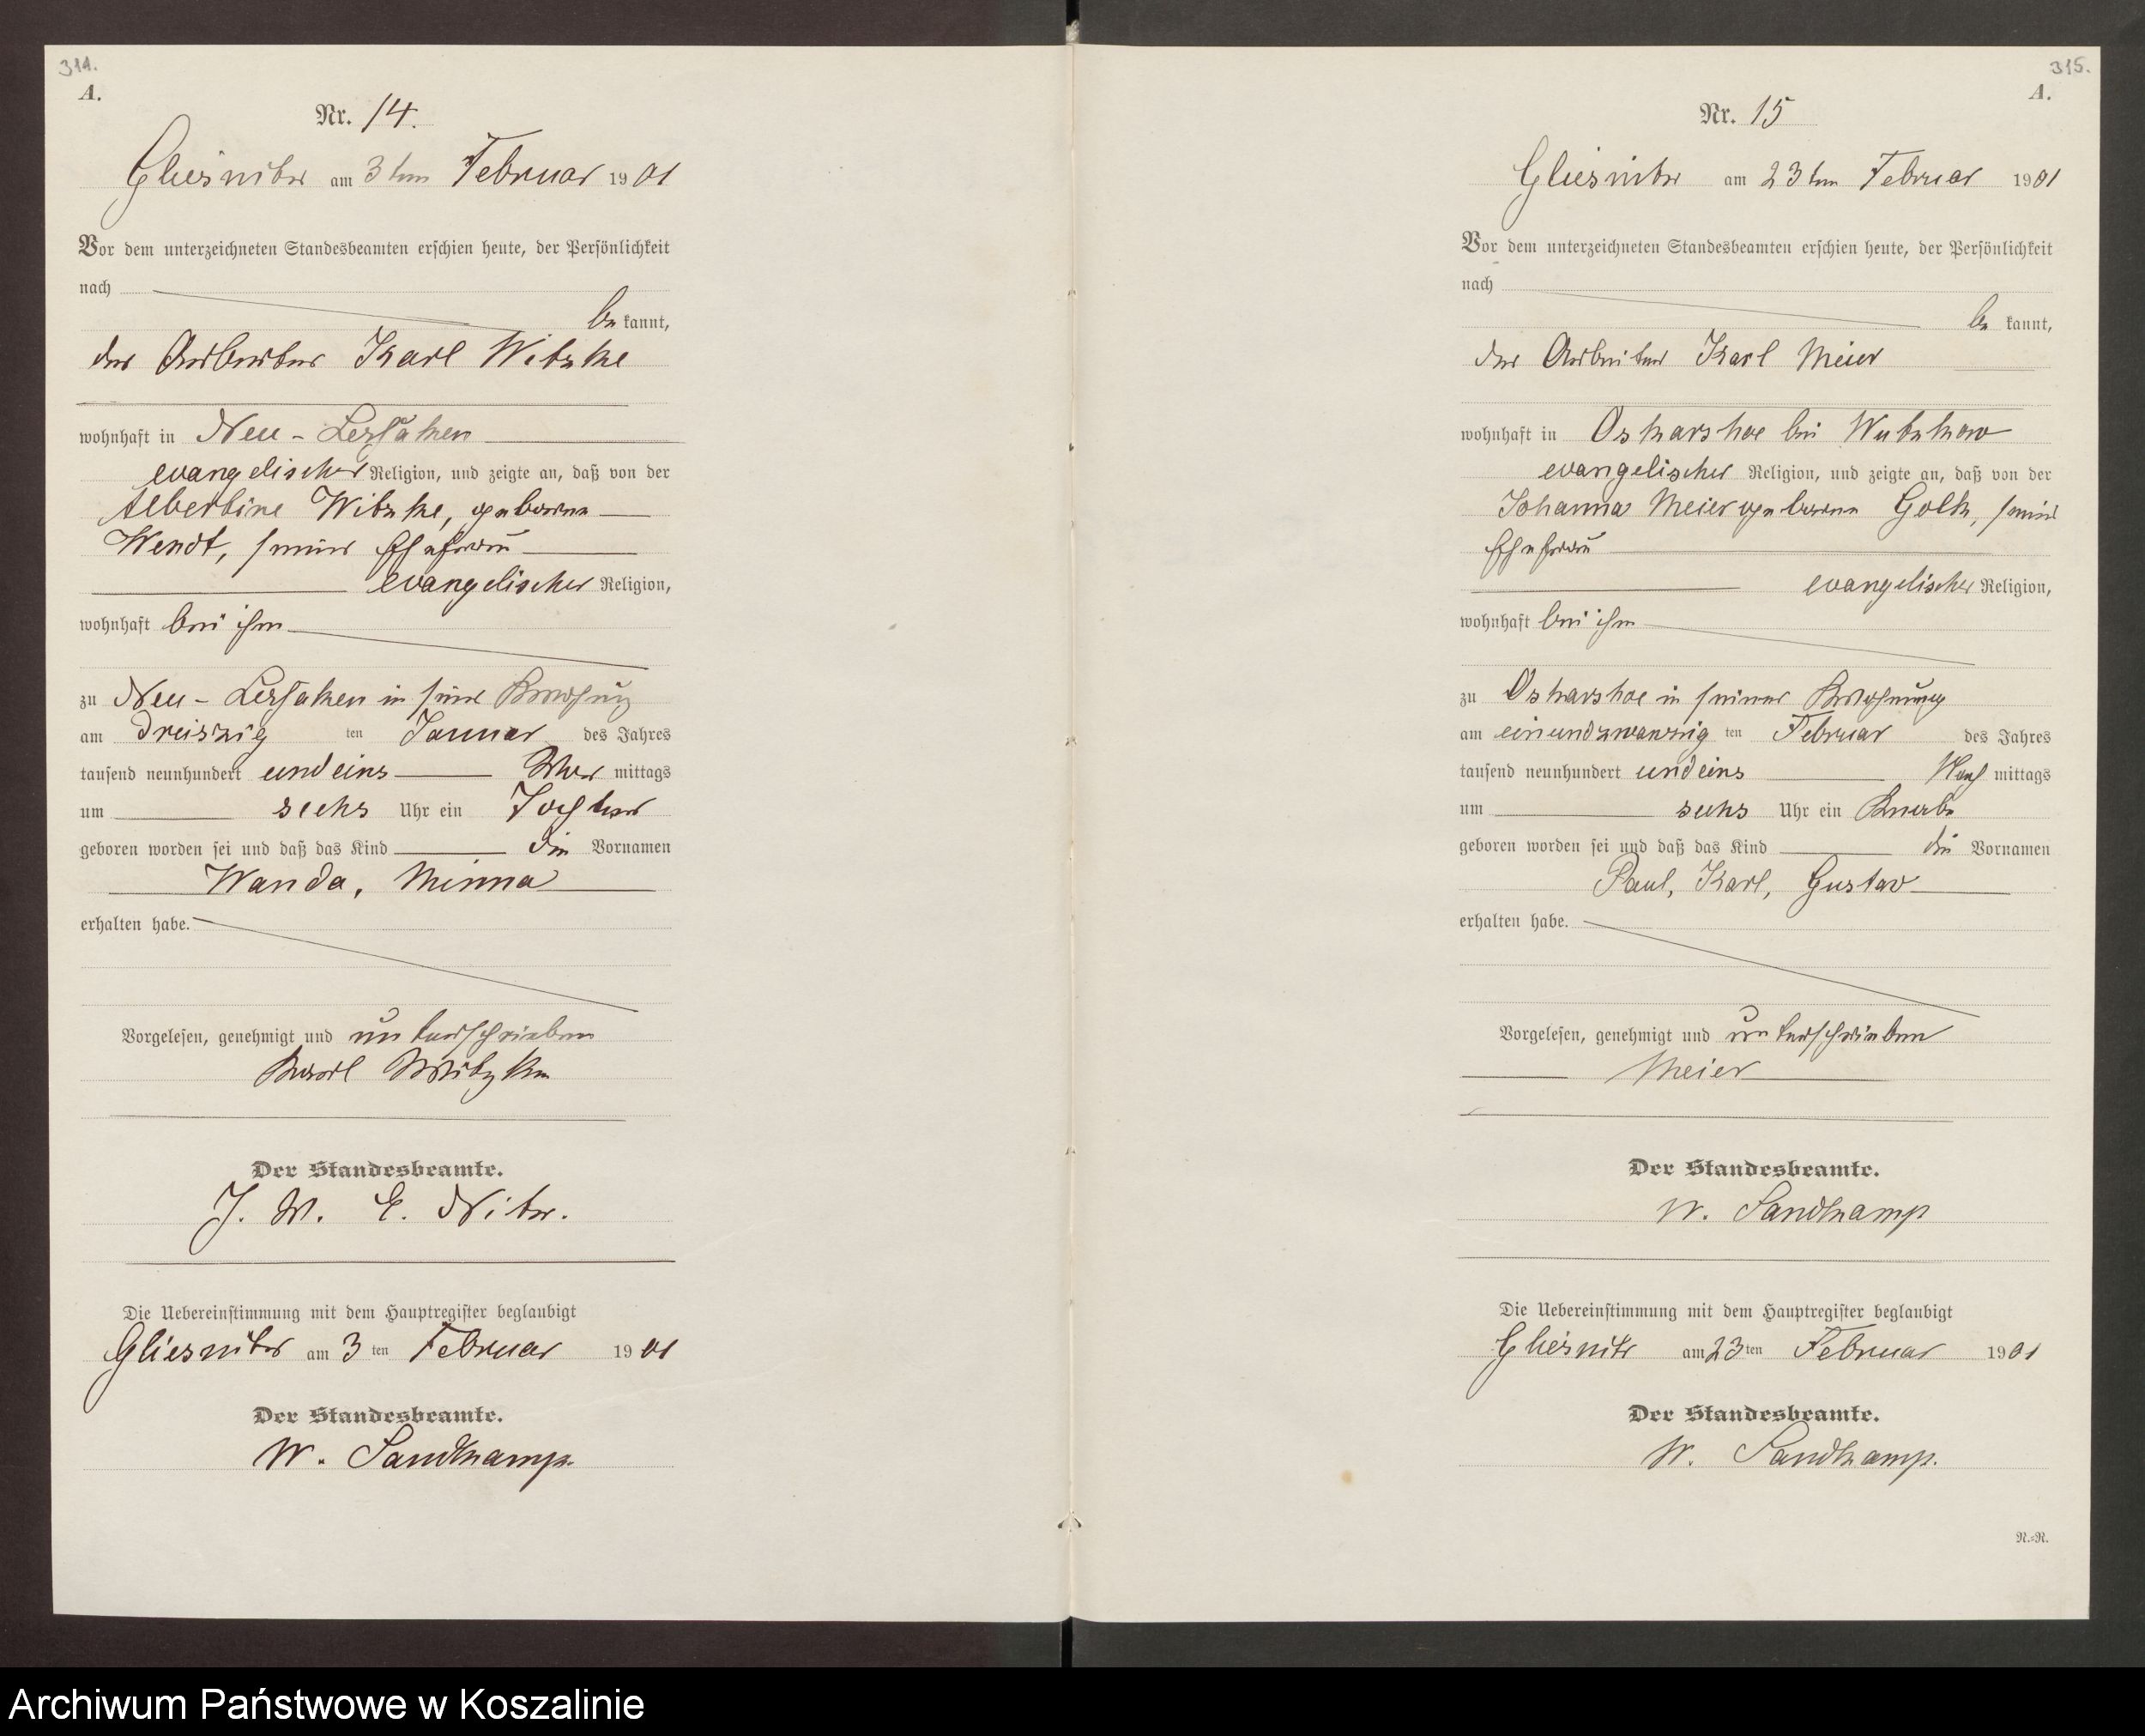 314.
A.
Nr. 14.
Gliesnitz am 3ten Februar 1901
Vor dem unterzeichneten Standesbeamten erschien heute, der Persönlichkeit
nach
be kannt,
der Arbeiter Karl Witzke
wohnhaft in Neu-
evangelischer Religion, und zeigte an, daß von der
Albertine Witzke, geborene
Wendt, seiner Ehefrau
evangelischer Religion,
wohnhaft bei ihm
zu Neu- in seiner Wohnung
am dreiszig ten Januar des Jahres
tausend neunhundert und eins Vor mittags
um sechs Uhr ein Tochter
geboren worden sei und daß das Kind die Vornamen
Wanda, Minna
erhalten habe.
Vorgelesen, genehmigt und unterschrieben
Karl Witzke
Der Standesbeamte.
J. V. E. Nitz.
Die Uebereinstimmung mit dem Hauptregister beglaubigt
Gliesnitz am 3 ten Februar 1901
Der Standesbeamte.
W. Sandkamp.
315.
A.
Nr. 15
Gliesnitz am 23ten Februar 1901
Vor dem unterzeichneten Standesbeamten erschien heute, der Persönlichkeit
nach
be kannt,
der Arbeiter Karl Meier
wohnhaft in Oskarshoe bei Wutzkow
evangelischer Religion, und zeigte an, daß von der
Johanna Meier geborene Golk, seiner
Ehefrau
evangelischer Religion,
wohnhaft bei ihm
zu Oskarshoe in seiner Wohnung
am einundzwanzig ten Februar des Jahres
tausend neunhundert und eins Nach mittags
um sechs Uhr ein Knabe
geboren worden sei und daß das Kind die Vornamen
Paul, Karl, Gustav
erhalten habe.
Vorgelesen, genehmigt und unterschrieben
Meier
Der Standesbeamte.
W. Sandkamp
Die Uebereinstimmung mit dem Hauptregister beglaubigt
Gliesnitz am 23 ten Februar 1901
Der Standesbeamte.
W. Sandkamp.
R.=R.
Archiwum Państwowe w Koszalinie